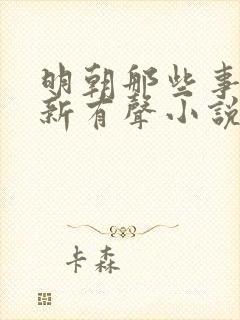 明朝那些事
新有聲小說
卡森